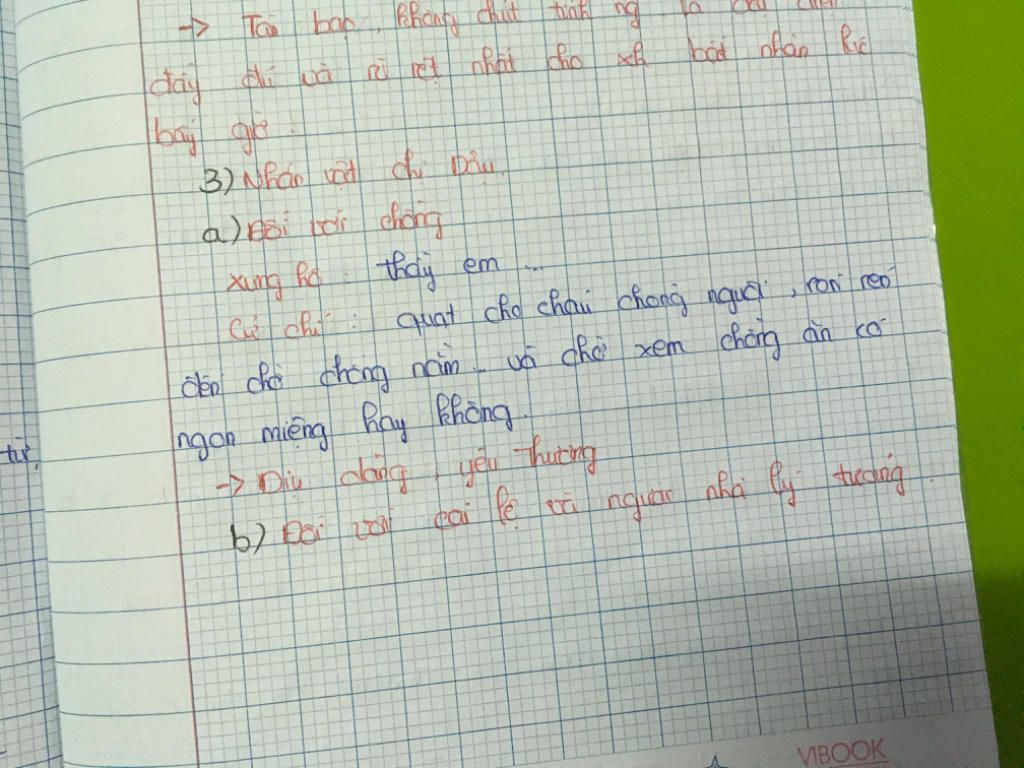 -> Tàn bạo, không chút tính ng là
đầy đủ và rõ rệt nhất cho xh bất nhân lúc
bấy giờ.
3) Nhân vật chị Dậu.
a) Đối với chồng
xưng hô : thầy em ...
Cử chỉ : quạt cho cháu chóng nguội, rón rén
đến chỗ chồng nằm.. và chờ xem chồng ăn có
ngon miệng hay không.
-> Dịu dàng, yêu thương
b) Đối với cai lệ và người nhà lý trưởng.
từ,
VIBOOK